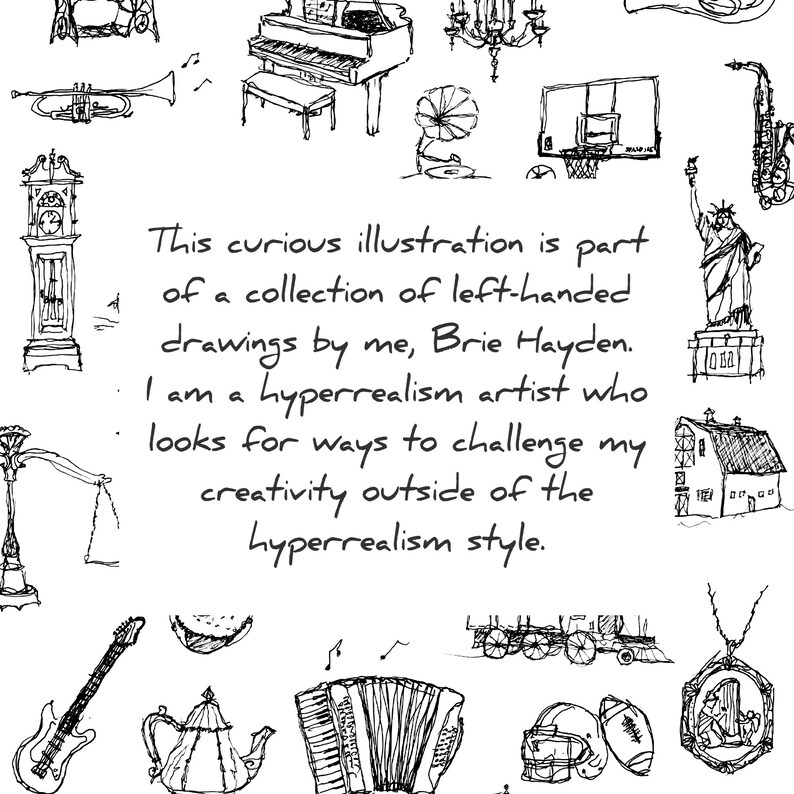 This curious illustration is part
of a collection of left-handed
drawings by me, Brie Hayden.
I am a hyperrealism artist who
looks for ways to challenge my
creativity outside of the
hyperrealism style.